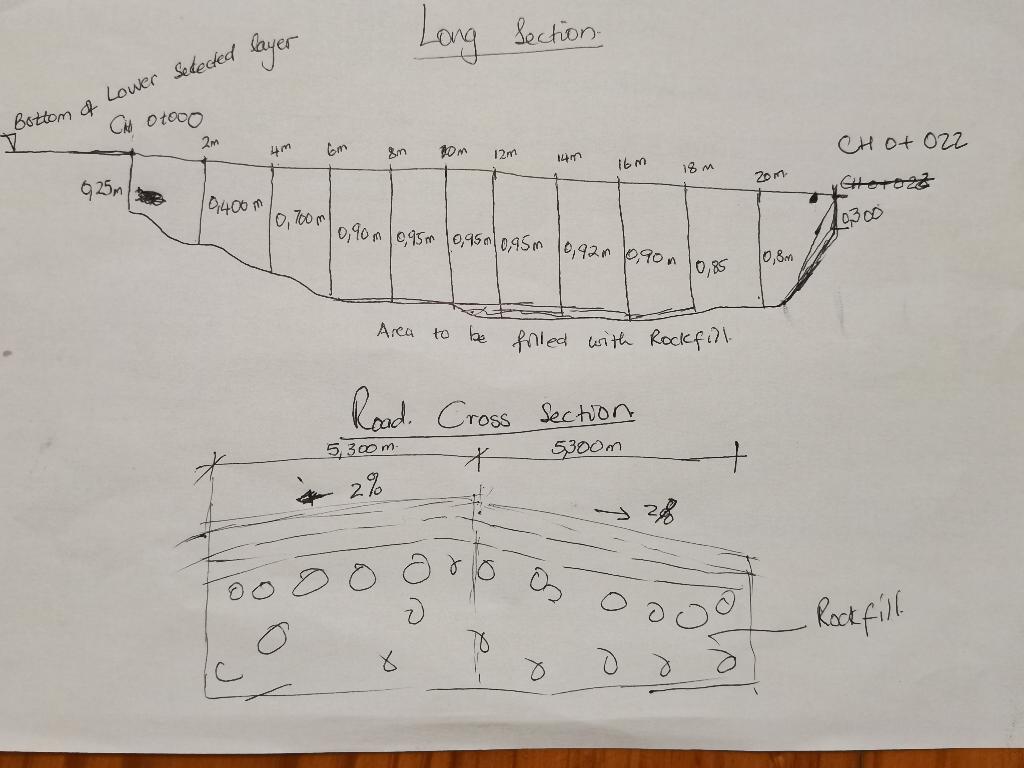 Long Section
Bottom of Lower Selected layer
CH 0+000
2m
4m
6m
8m
10m
12m
14m
16m
18m
20m
CH 0+022
0,25m
0,400m
0,700m
0,90m
0,95m
0,95m
0,95m
0,92m
0,90m
0,85
0,8m
0,300
Area to be filled with Rockfill.
Road. Cross Section
5,300m
5300m
2%
2%
Rockfill.